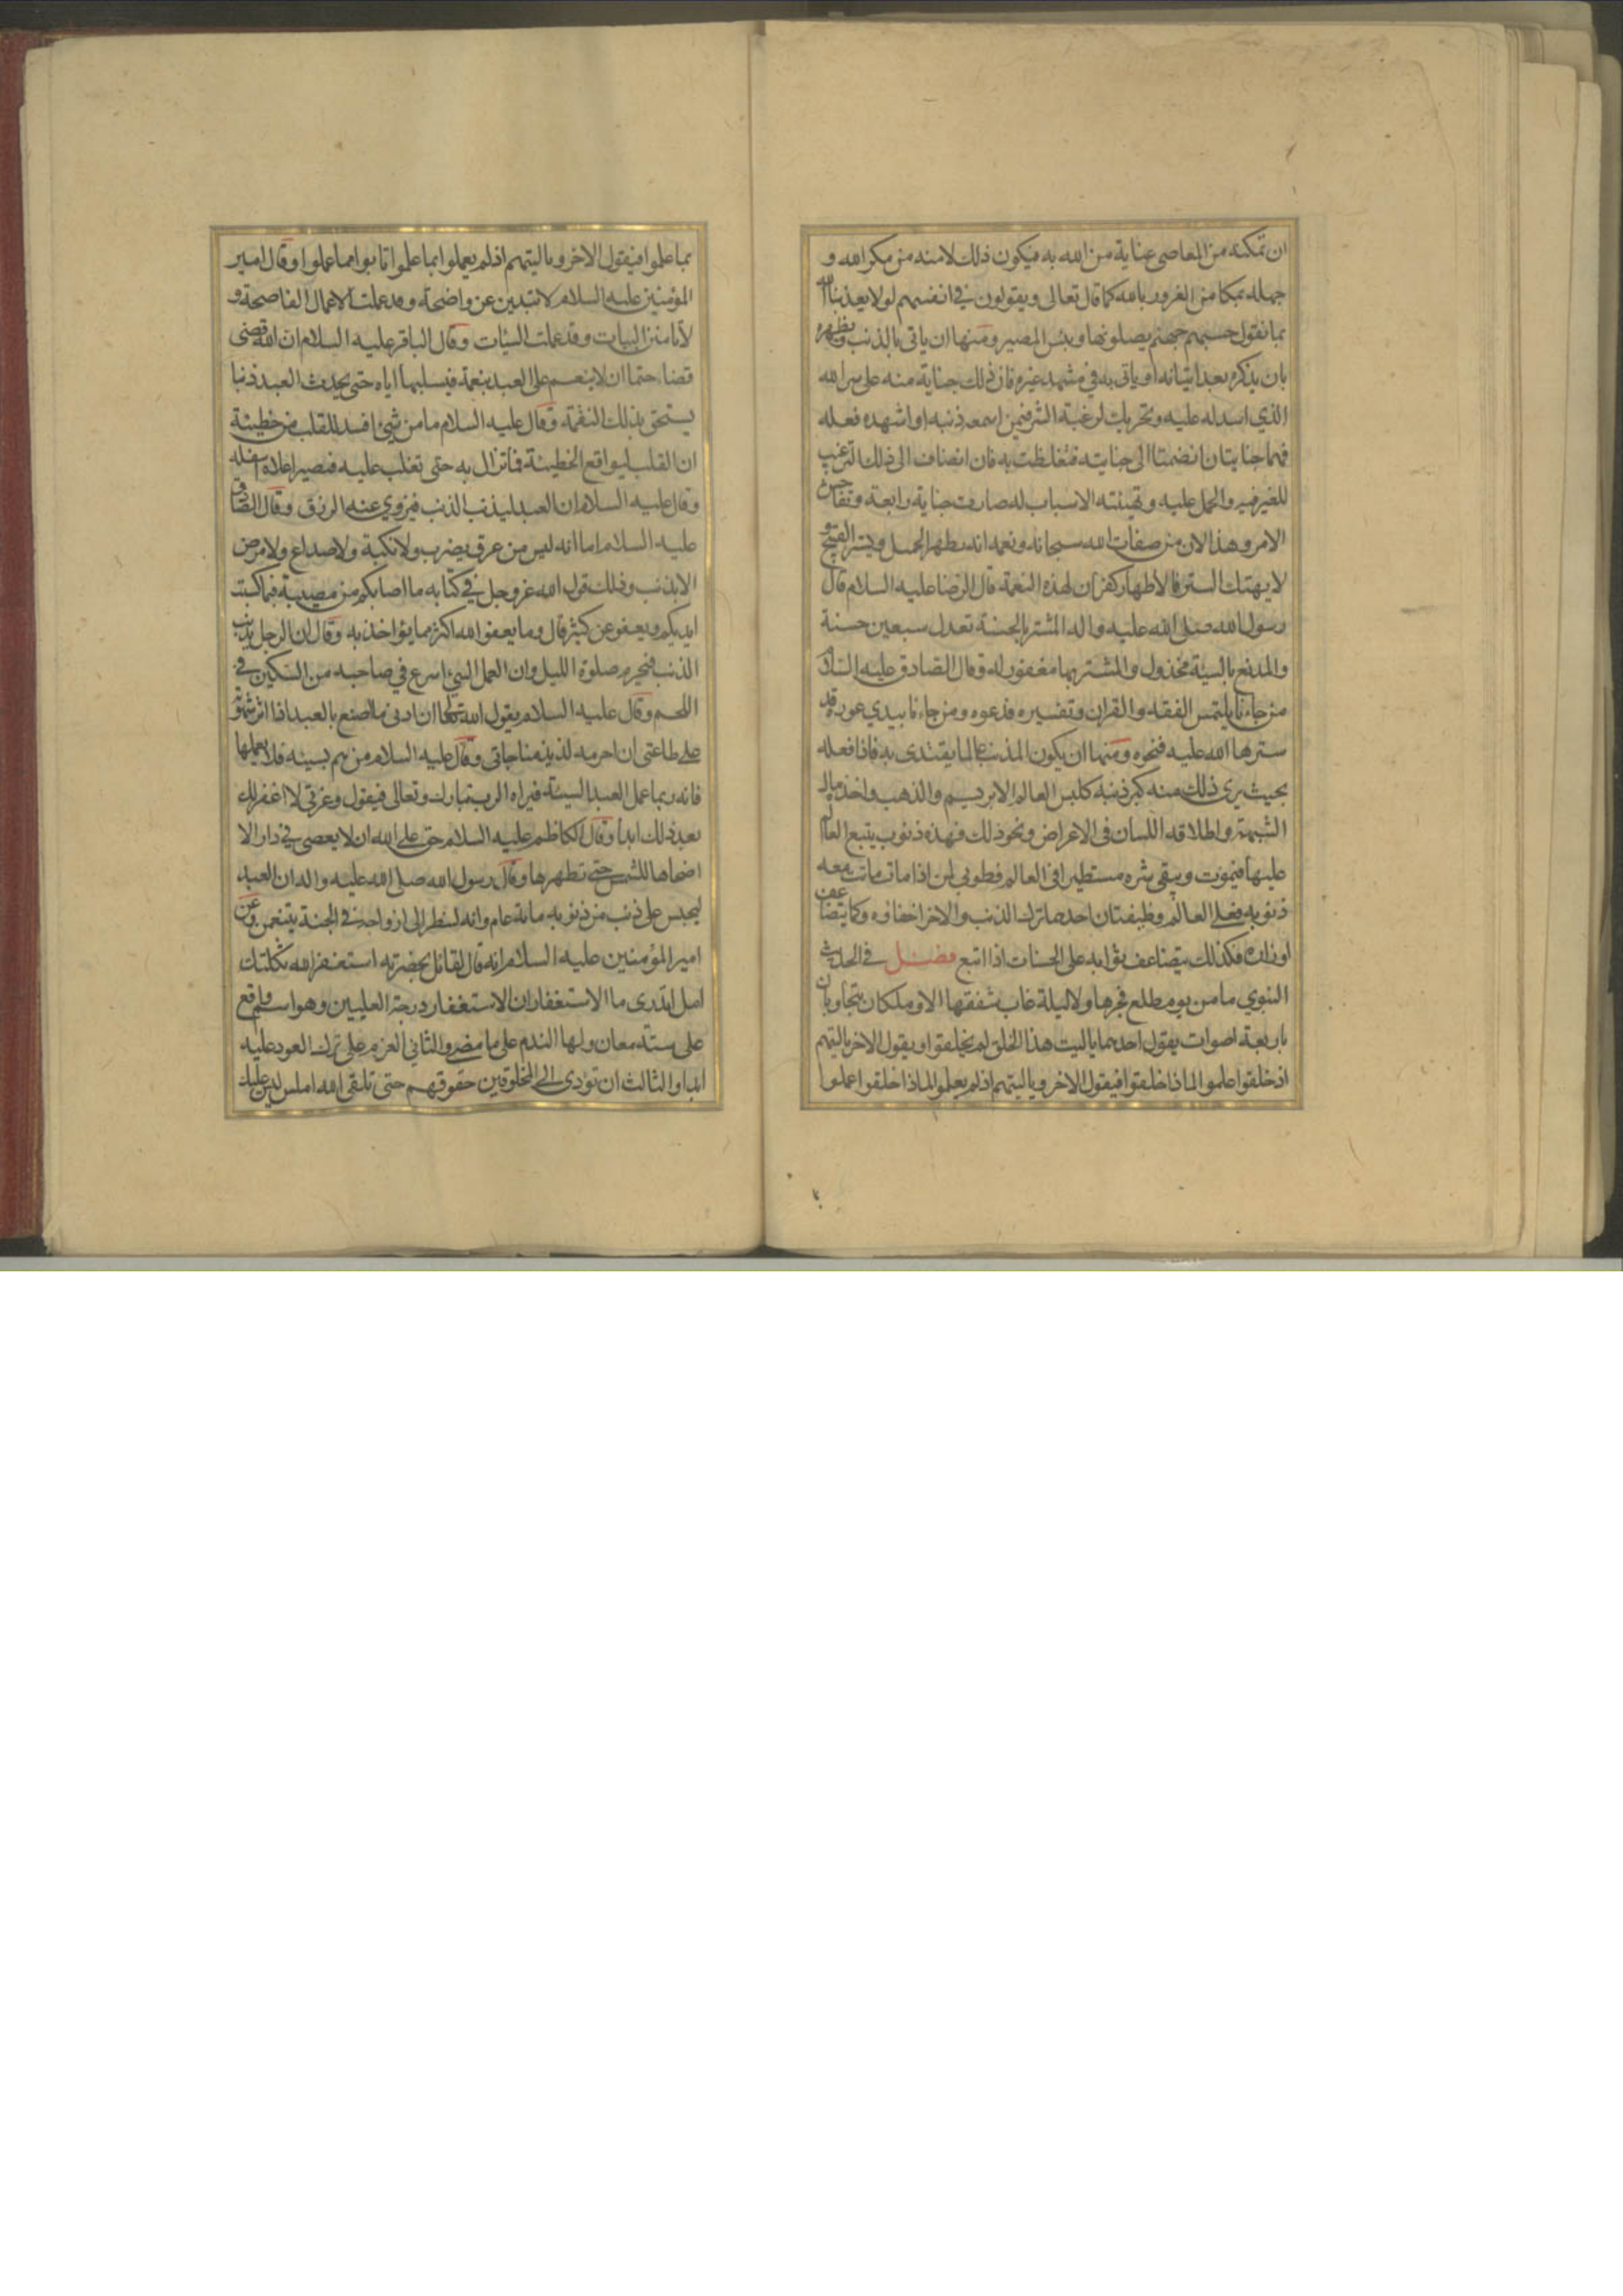 ان تمكنه من المعاصي عناية من الله به فيكون ذلك لامنه من مكر الله و
جهله بمكامن الغرور بالله كما قال تعالى ويقولون في انفسهم لولا يعذبنا الله
بما نقول حسبهم جهنم يصلونها وبئس المصير ومنها ان ياتي بالذنب ويظهره
بان يذكره بعد اتيانه او ياتي به في مشهد غيره فان ذلك جناية منه على سر الله
الذي اسدله عليه وتحريك لرغبة الشر فيمن اسمعه ذنبه او اشهده فعله
فهما جنايتان انضمتا الى جنايته فتغلظت به فان انضاف الى ذلك الترغيب
للغير فيه والحمل عليه وتهيئته الاسباب له صارت جناية رابعة وتفاحش
الامر وهذا لان من صفات الله سبحانه ونعمه انه يظهر الجميل ويستر القبيح و
لا يهتك الستر فالاظهار كفران لهذه النعمة قال الرضا عليه السلام قال
رسول الله صلى الله عليه واله المستتر بالحسنة تعدل سبعين حسنة
والمذيع بالسيئة مخذول والمستتر بها مغفور له وقال الصادق عليه السلام
من جاءنا يلتمس الفقه والقران وتفسيره فدعوه ومن جاءنا يبدي عورة قد
سترها الله عليه فنحوه ومنها ان يكون المذنب عالما يقتدى به فاذا فعله
بحيث يرى ذلك منه كبر ذنبه كلبس العالم الابريسم والذهب واخذ مال
الشبهة واطلاقه اللسان في الاعراض ونحو ذلك فهذه ذنوب يتبع العالم
عليها فيموت ويبقى شره مستطيرا في العالم فطوبى لمن اذا مات ماتت معه
ذنوبه فعلى العالم وظيفتان احدهما ترك الذنب والاخر اخفاؤه وكما يتضاعف
اوزاره فكذلك يتضاعف ثوابه على الحسنات اذا اتبع فصل في الحديث
النبوي ما من يوم طلع فجرها ولا ليلة غاب شفقها الا وملكان يتجاوبان
باربعة اصوات يقول احدهما يا ليت هذا الخلق لم يخلقوا ويقول الاخر يا ليتهم
اذ خلقوا علموا لماذا خلقوا فيقول الاخر ويا ليتهم اذ لم يعلموا لماذا خلقوا عملوا
بما علموا فيقول الاخر ويا ليتهم اذ لم يعملوا بما علموا تابوا مما عملوا وقال امير
المؤمنين عليه السلام لا تبدين عن واضحة وقد عملت الاعمال الفاضحة و
لا تامنن البيات وقد عملت السيئات وقال الباقر عليه السلام ان الله قضى
قضاء حتما ان لا ينعم على العبد بنعمة فيسلبها اياه حتى يحدث العبد ذنبا
يستحق بذلك النقمة وقال عليه السلام ما من شيء افسد للقلب من خطيئة
ان القلب ليواقع الخطيئة فما تزال به حتى تغلب عليه فيصير اعلاه اسفله
وقال عليه السلام ان العبد ليذنب الذنب فيزوي عنه الرزق وقال الصادق
عليه السلام اما انه ليس من عرق يضرب ولا نكبة ولا صداع ولا مرض
الا بذنب وذلك قول الله عز وجل في كتابه ما اصابكم من مصيبة فبما كسبت
ايديكم ويعفو عن كثير قال وما يعفو الله اكثر مما يؤاخذ به وقال ان الرجل يذنب
الذنب فيحرم صلوة الليل وان العمل السيئ اسرع في صاحبه من السكين في
اللحم وقال عليه السلام يقول الله تعالى ان ادنى ما اصنع بالعبد اذا اثر شهوته
على طاعتي ان احرمه لذيذ مناجاتي وقال عليه السلام من هم بسيئة فلا يعملها
فانه ربما عمل العبد السيئة فيراه الرب تبارك وتعالى فيقول وعزتي لا اغفر لك
بعد ذلك ابدا وقال الكاظم عليه السلام حق على الله ان لا يعصى في دار الا
اضحاها للشمس حتى تطهرها وقال رسول الله صلى الله عليه واله ان العبد
ليحبس على ذنب من ذنوبه مائة عام وانه لينظر الى ازواجه في الجنة يتنعمن وعن
امير المؤمنين عليه السلام انه قال لقائل بحضرته استغفر الله ثكلتك
امك اتدري ما الاستغفار ان الاستغفار درجة العليين وهو اسم واقع
على ستة معان اولها الندم على ما مضى والثاني العزم على ترك العود عليه
ابدا والثالث ان تؤدي الى المخلوقين حقوقهم حتى تلقى الله املس ليس عليك